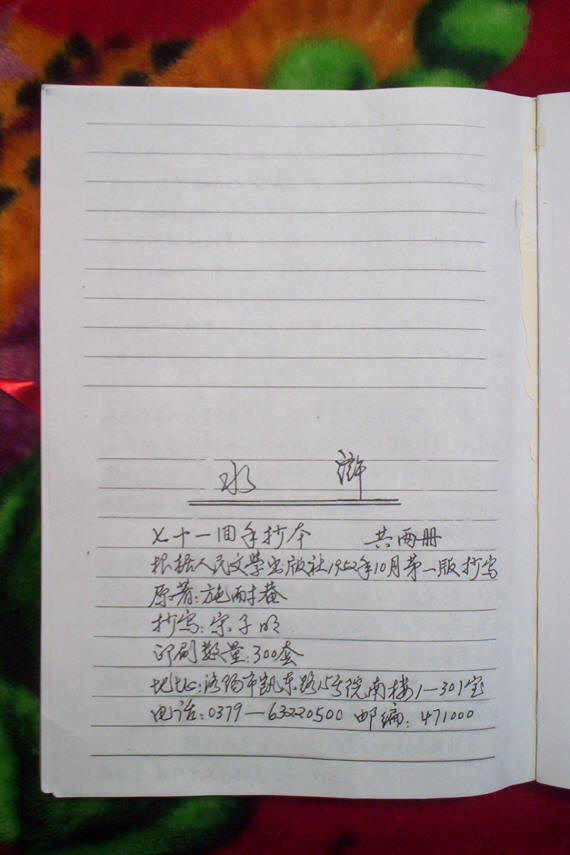 水 浒
七十一回手抄本 共两册
根据人民文学出版社1952年10月第一版抄写
原著:施耐菴
抄写:宋子明
印刷数量:300套
地址:洛阳市凯东路15号院南楼1—301室
电话:0379—63220500 邮编:471000